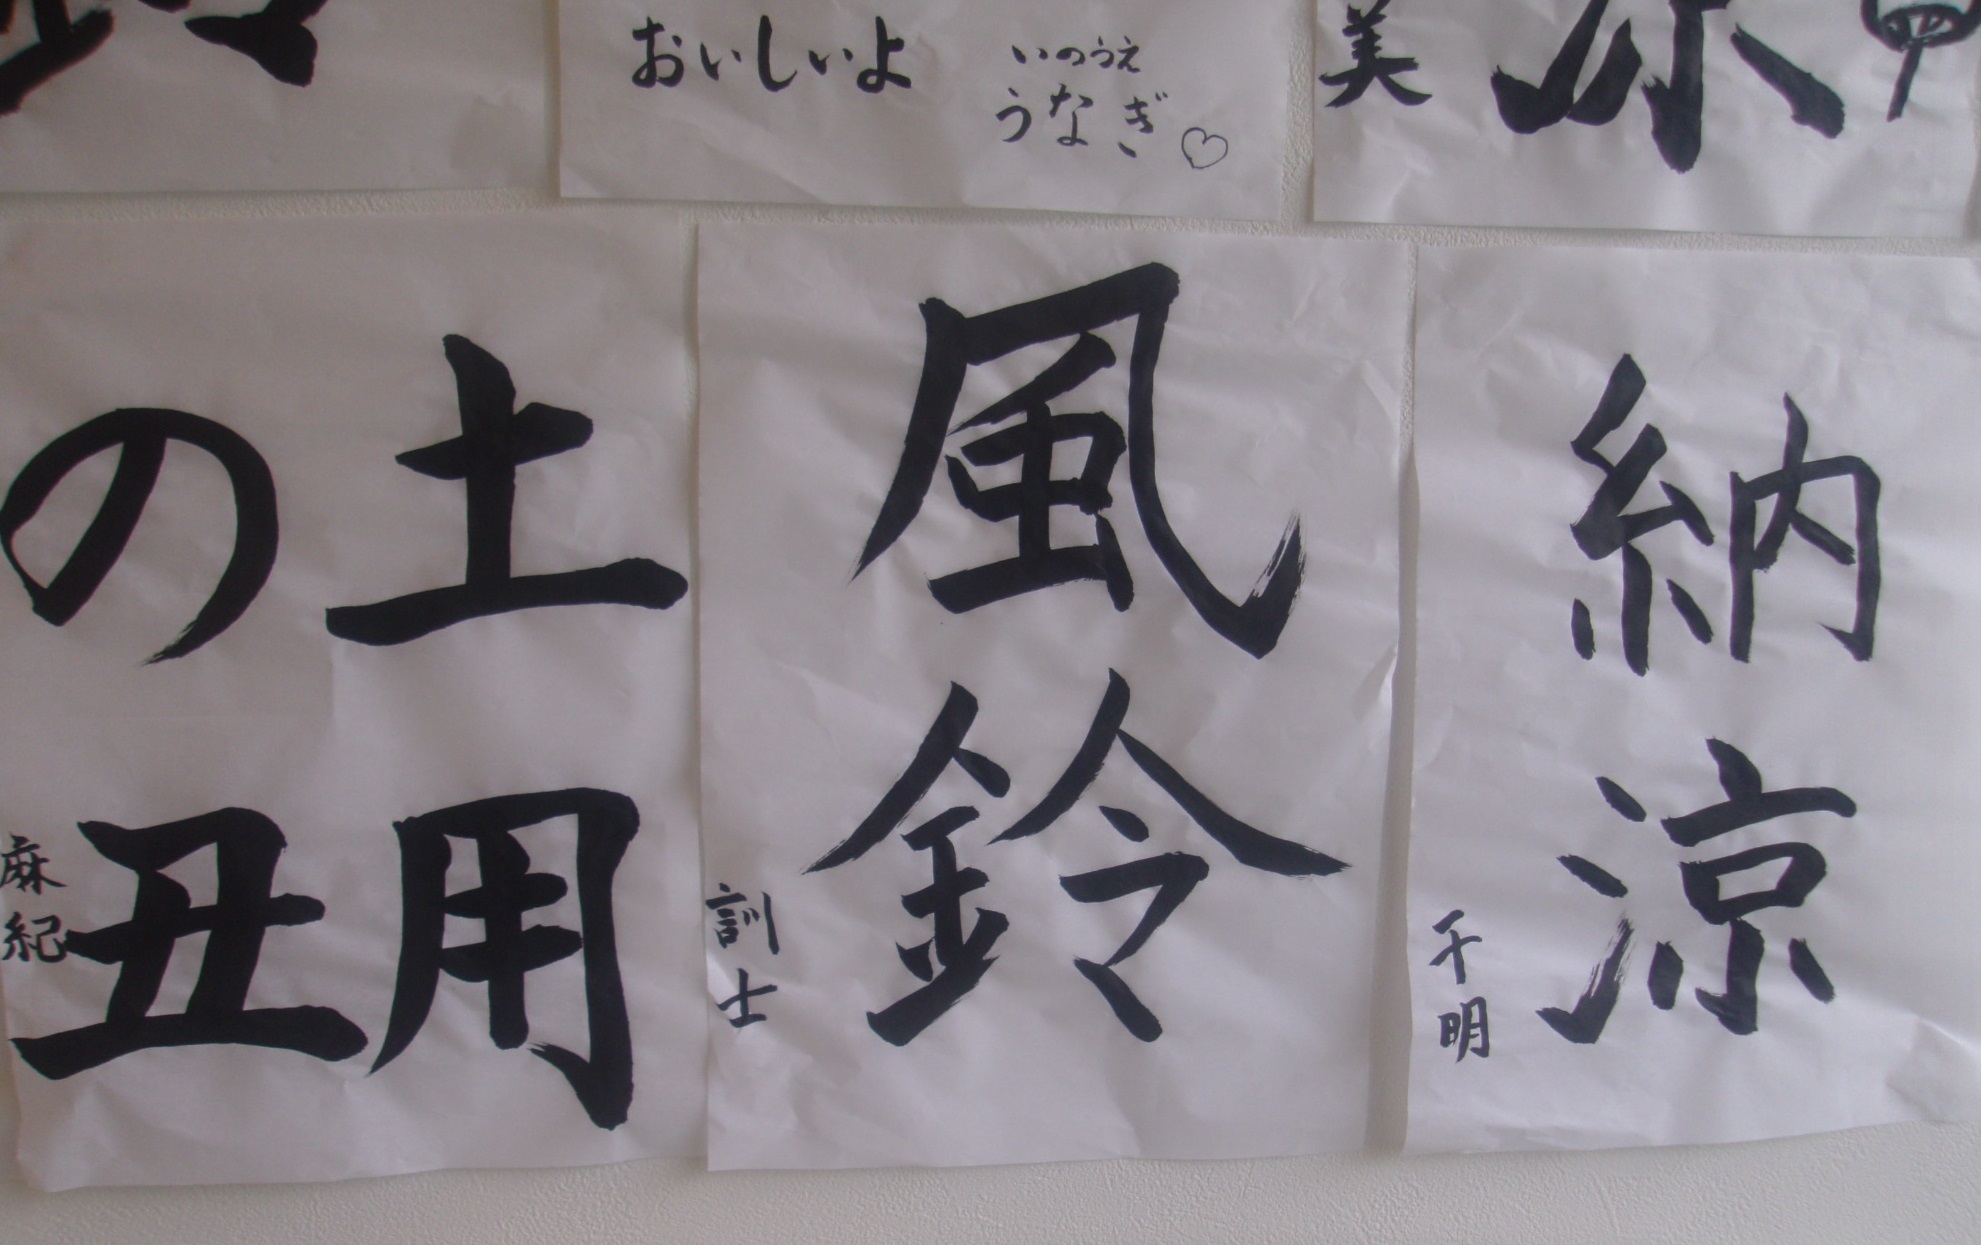 おいしいよ
いのうえ
うなぎ
美
涼
土用
の丑
麻紀
風鈴
訓士
納涼
千明